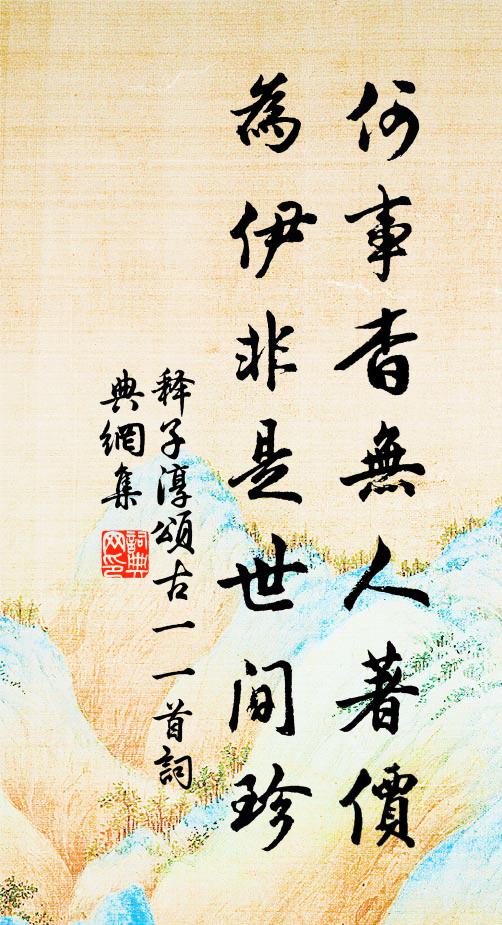 何事杳無人著價
為伊非是世間珍
释子淳頌古一一首詞
典網集
詞典網印